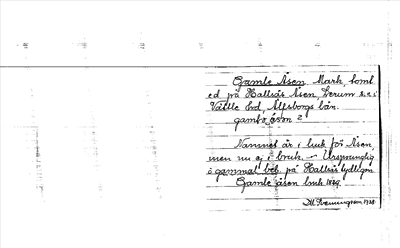 Gamle Åsen Mark, tomt
ed på Hallsås Åsen, Lerum s:n i
Vättle hd, Älfsborgs län.
gambə åsn 2
Namnet är i bruk för Åsen
men nu ej i bruk. — Ursprunglig
o gammal beb. på Hallsås tydligen
Gamle åsen bruk
1928